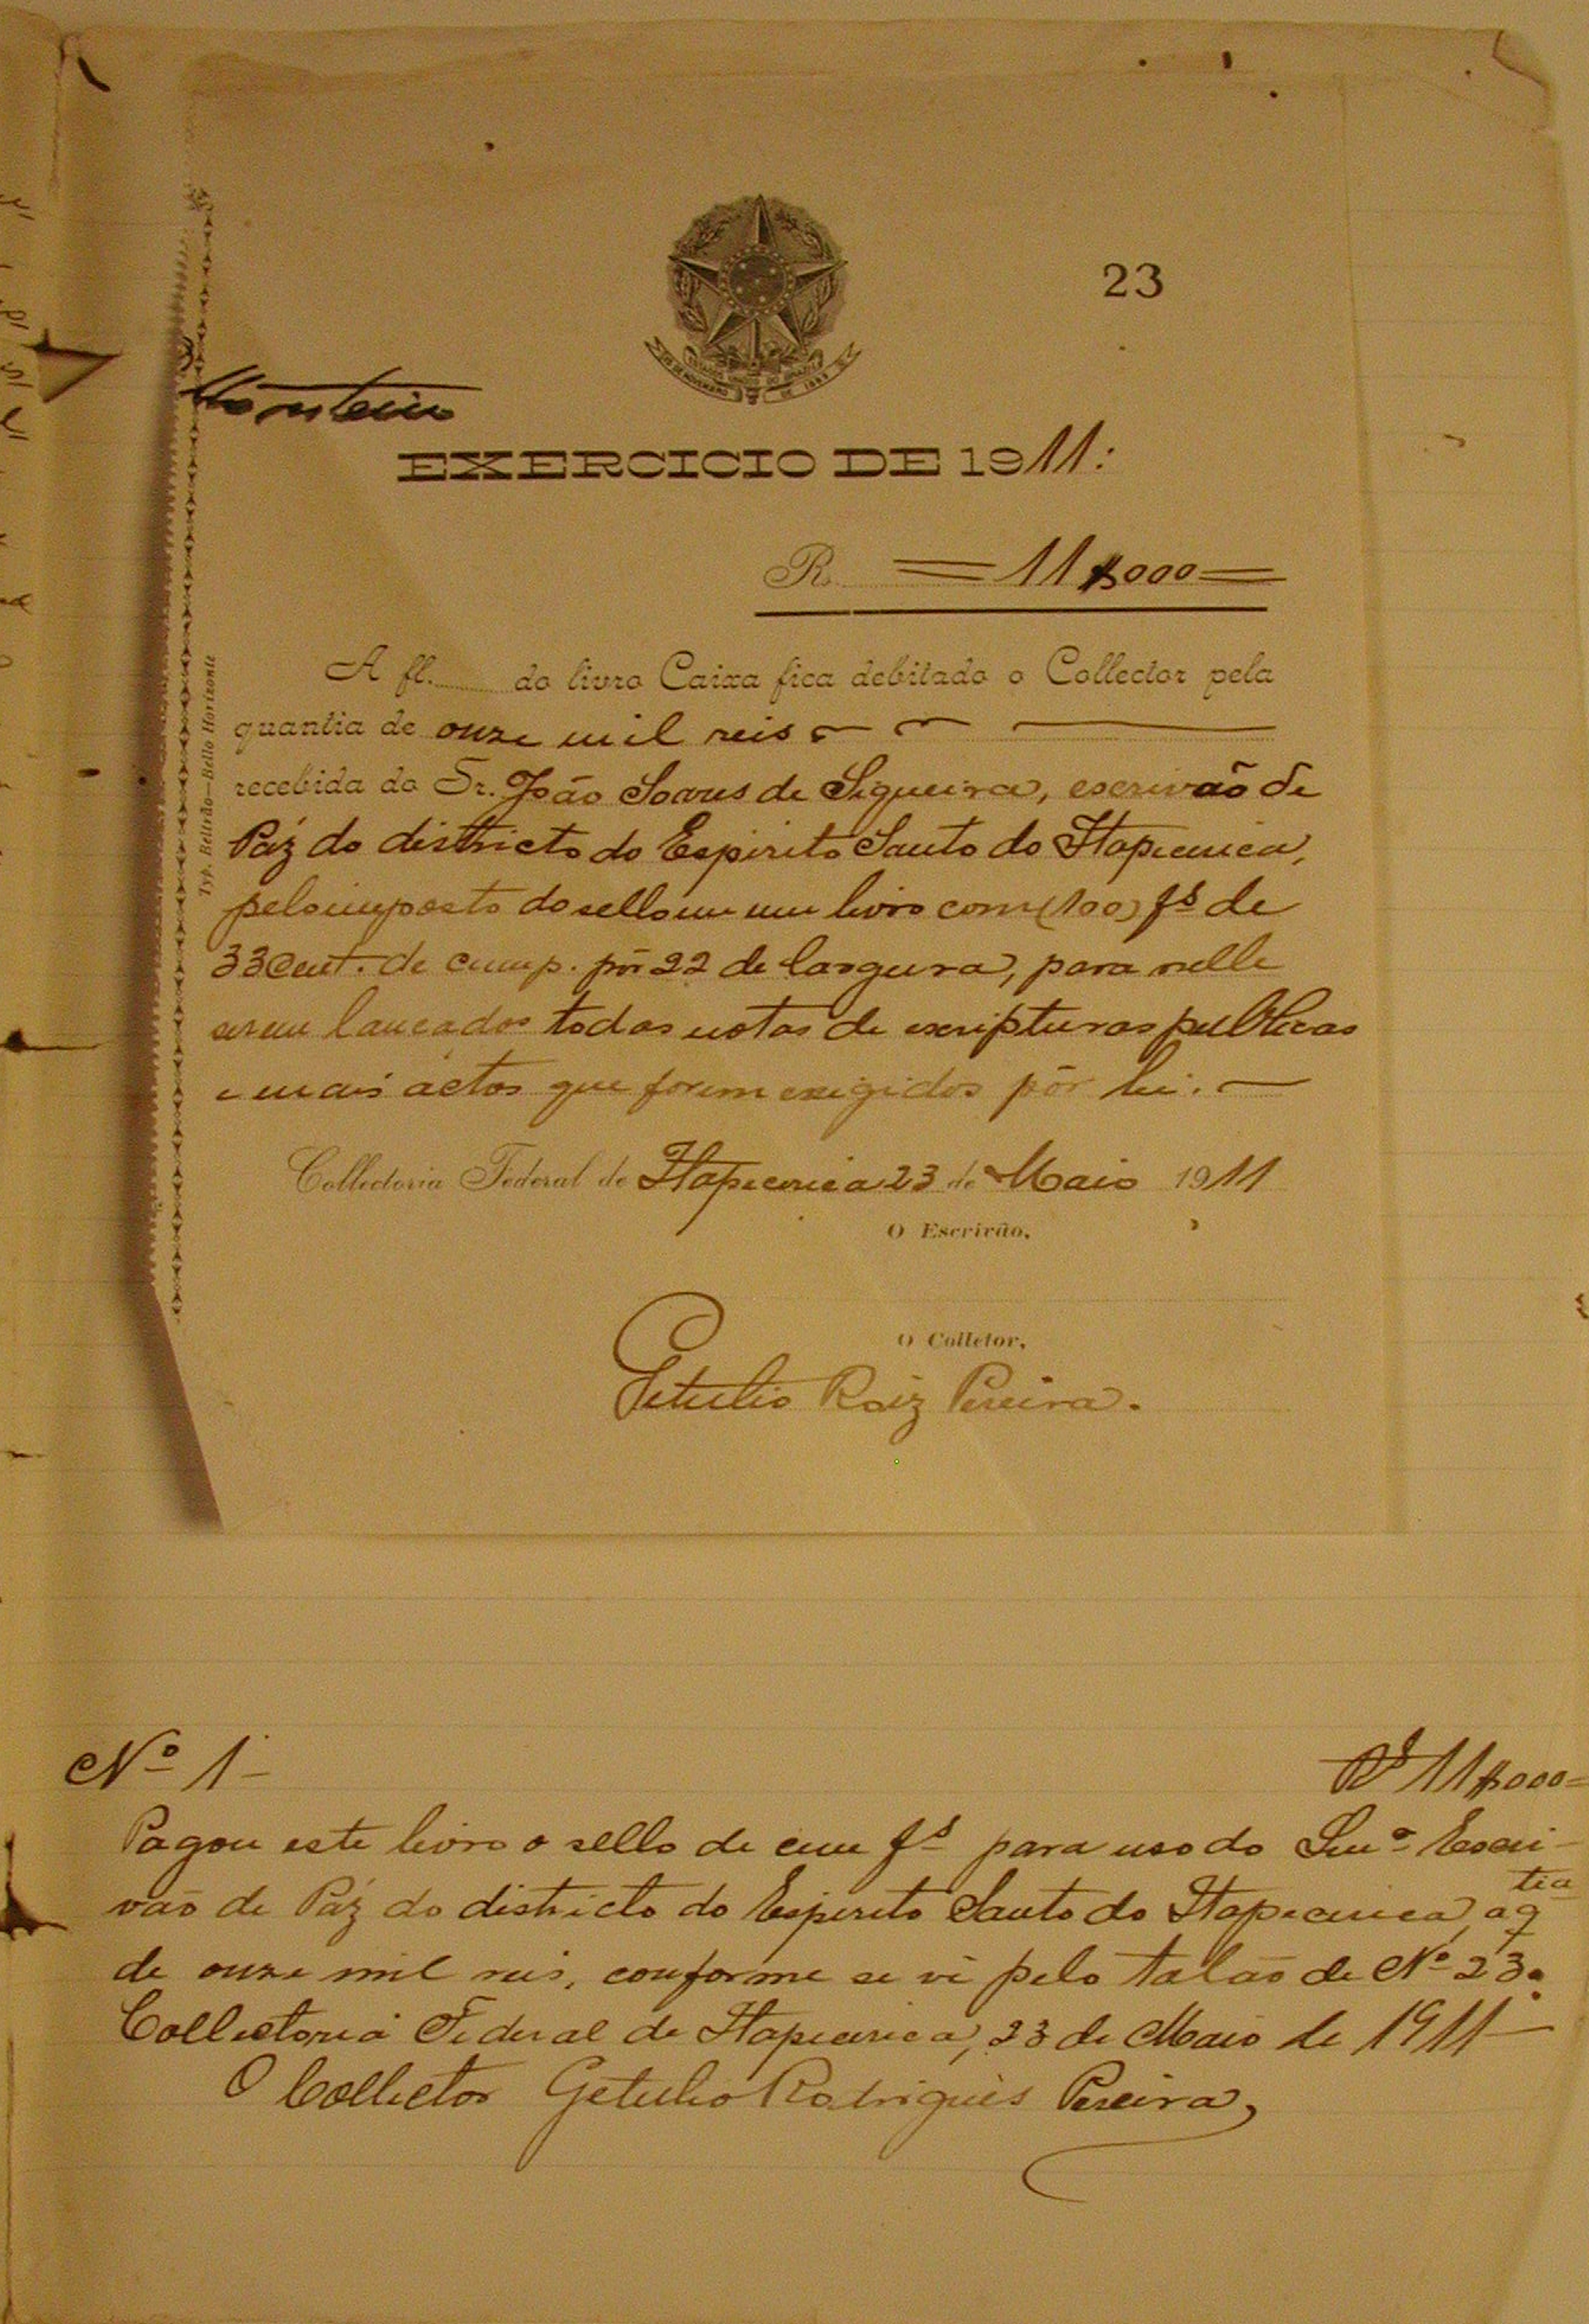 23
Monteiro
EXERCICIO DE 1911:
Rs. = 11$000 =
A fl. do livro Caixa fica debitado o Collector pela
quantia de onze mil reis
recebida do Sr. João Soares de Siqueira, escrivão de
Páz do districto do Espirito Santo do Itapecerica,
pelo imposto do sello em um livro com (100) fs de
33 Cent. de comp. pōr 22 de largura, para nelle
serem lançados todas notas de escripturas publicas
e mais actos que forem exigidos pōr lei.
Collectoria Federal de Itapecerica 23 de Maio 1911
O Escrivão,
O Colletor,
Getulio Roiz Pereira.
Typ. Beltrão—Bello Horizonte
Nº 1
Rs 11$000=
Pagou este livro o sello de cem fs para uso do Snr. Escri-
vão de Páz do districto do Espirito Santo do Itapecerica, a qtia
de onze mil reis, conforme se vê pelo talão de Nº 23.
Collectoria Federal de Itapecerica, 23 de Maio de 1911
O Collector Getulio Rodrigues Pereira,